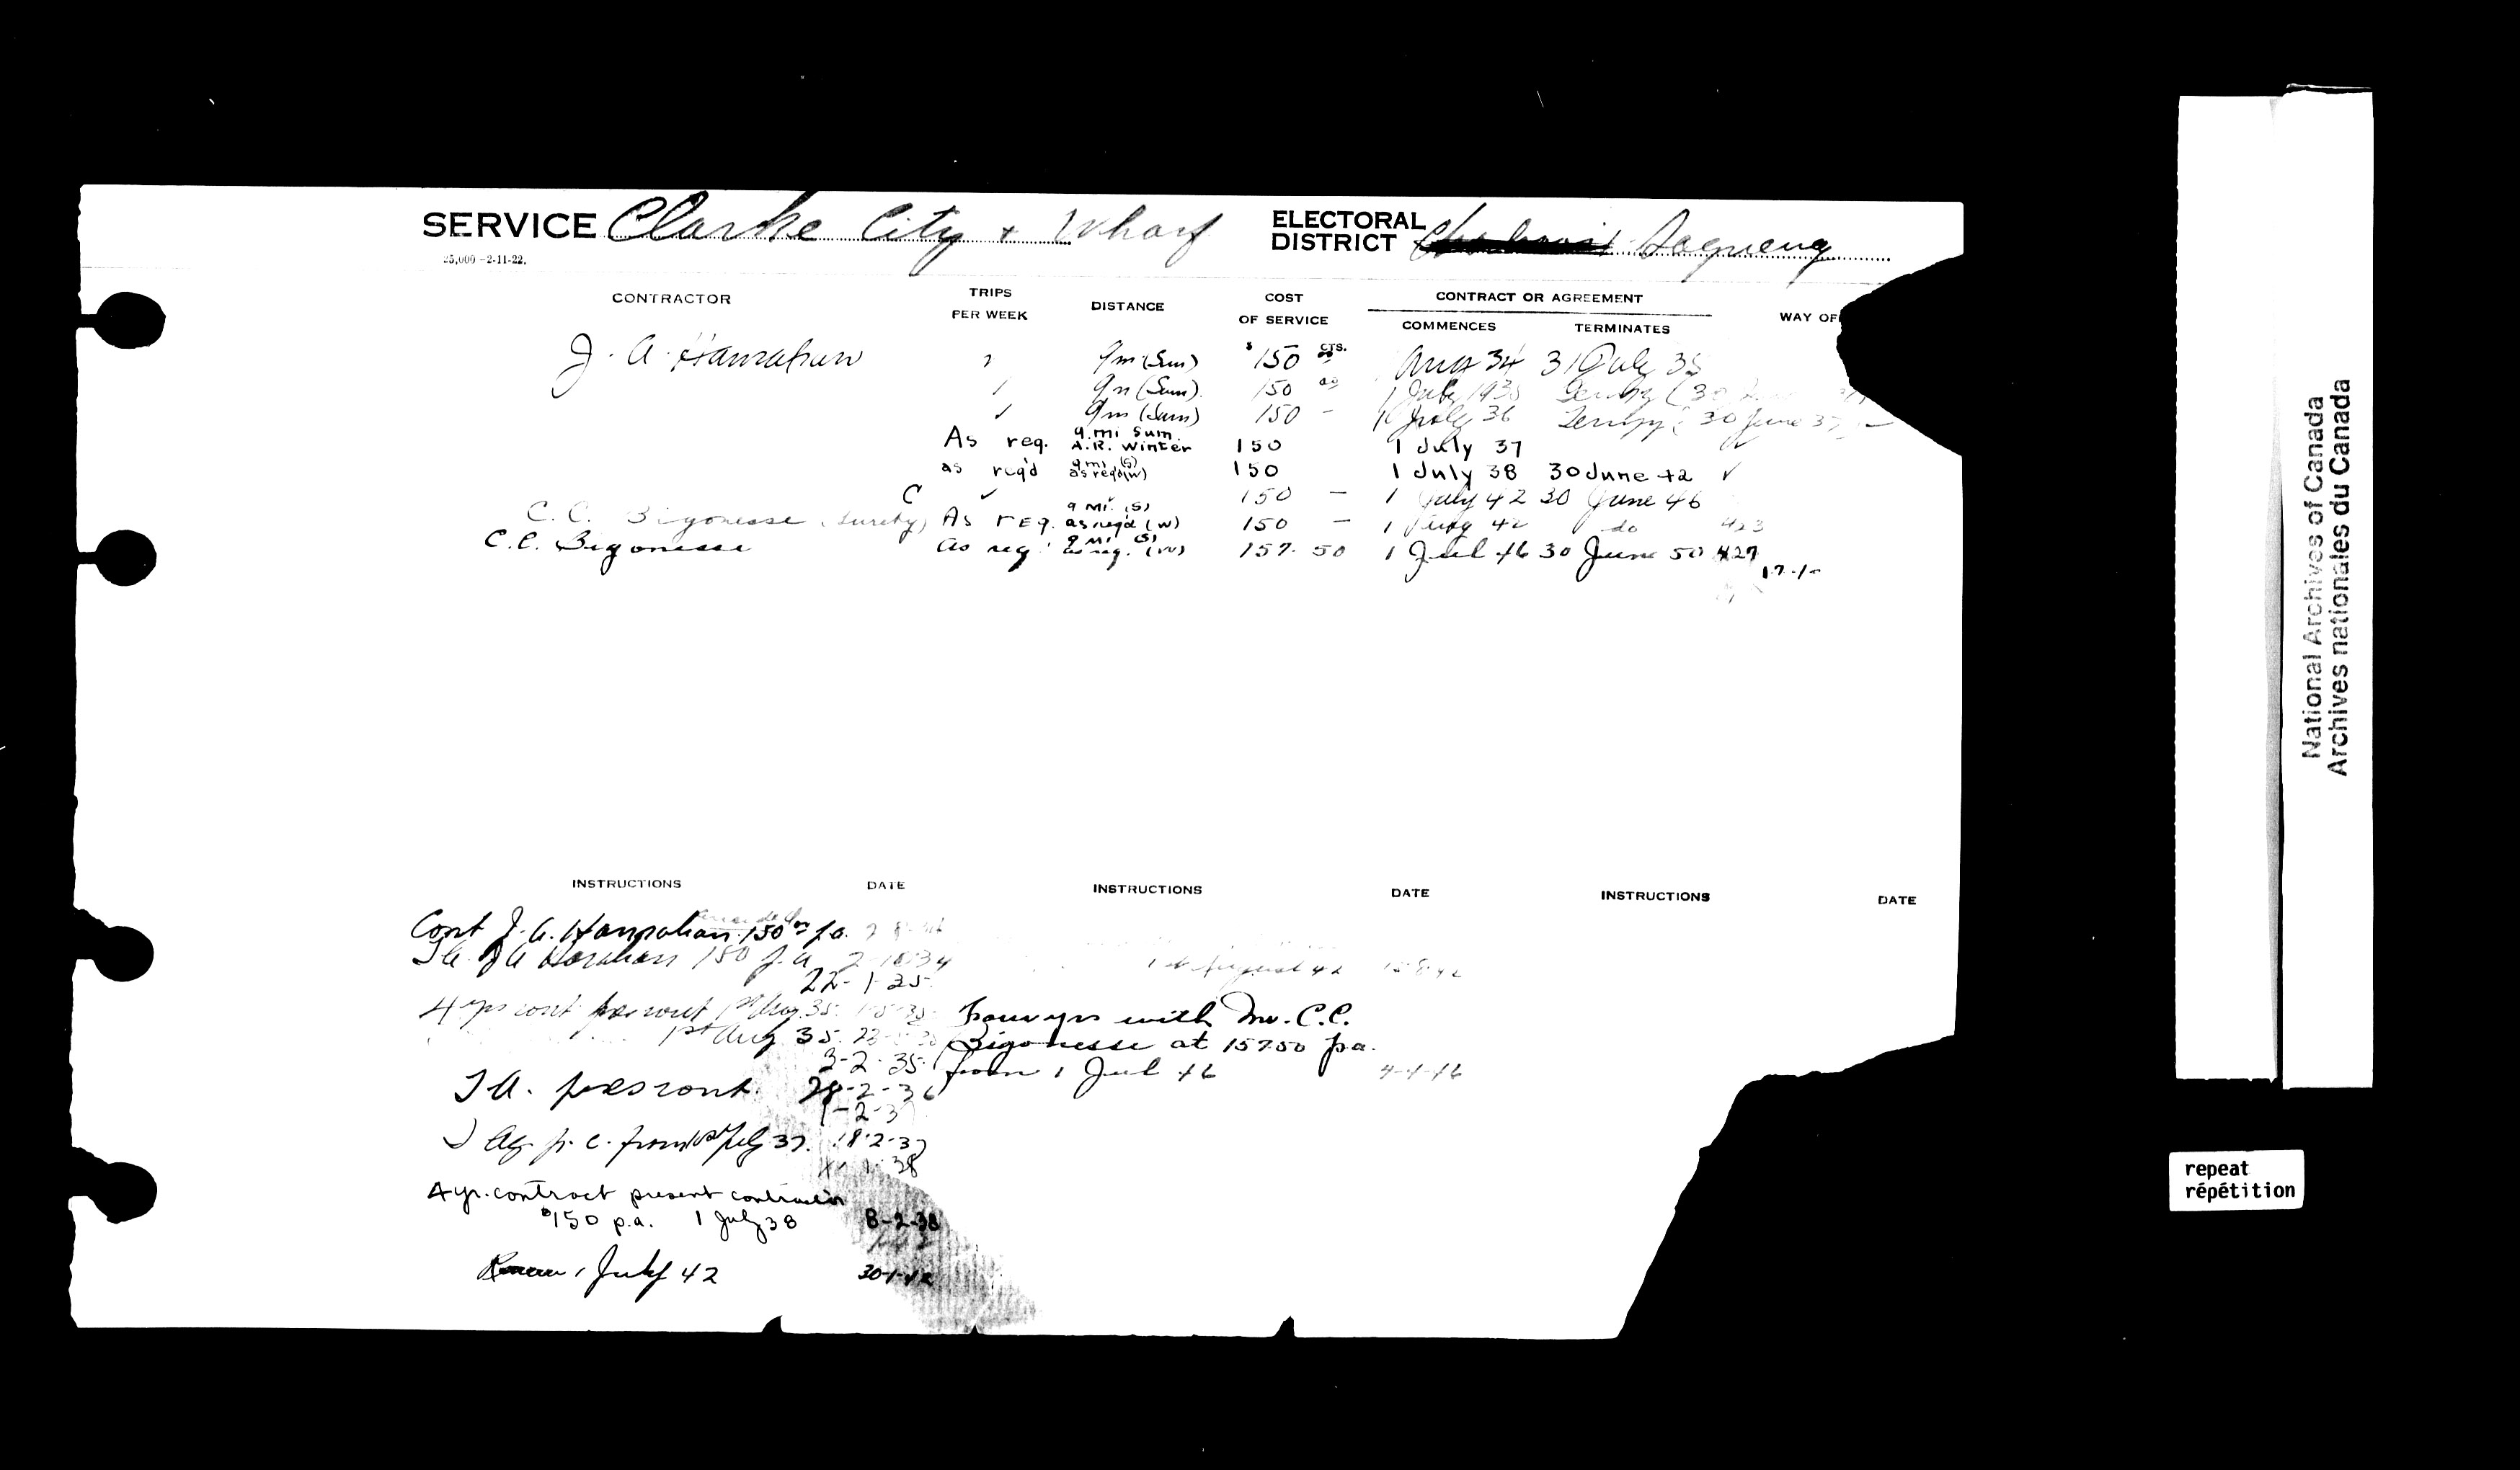 SERVICE Clarke City + Wharf
ELECTORAL DISTRICT Saguenay
25,000-2-11-22.
CONTRACTOR TRIPS PER WEEK DISTANCE COST OF SERVICE CONTRACT OR AGREEMENT WAY OF
COMMENCES TERMINATES
J. A. Hanrahan 9m (Sum) $150 CTS. 34 31 July 35
9m (Sum) 150 00 1 July 193
✓ 9m (Sum) 150 - 1 July 36 Tempy (30 June 37) -
As req. 9.mi Sum. A.R. Winter 150 1 July 37
as req'd 9mi (S) as reqd(W) 150 1 July 38 30 June 42 ✓
C ✓ 150 - 1 July 42 30 June 46
C. C. Bigonesse (Surety) As rEq. 9 Mi. (S) as req'd (W) 150 - 1 July 42 do 423
C.C. Bigonesse as req. 9 Mi (S) as req. (W) 157.50 1 Jul 46 30 June 50 427
INSTRUCTIONS DATE INSTRUCTIONS DATE INSTRUCTIONS DATE
Cont J. A. Hanrahan 150 00 p.a.
T.A. J A Hanrahan 150 p.a. 34
22-1-35
4 yrs cont pres cont 1st Aug. 35
1st Aug 35
2-2-35
T.A. pres cont. 28-2-36
Ag. p. c. from 1st July 37. 18-2-37
38
4 yr. contract present contractor
$150 p.a. 1 July 38 8-2-38
1 July 42 30-1-42
1st August 42 15-8-42
Four yrs with Mr. C.C.
Bigonesse at 157.50 p.a.
from 1 Jul 46 4-1-46
National Archives of Canada
Archives nationales du Canada
repeat
répétition